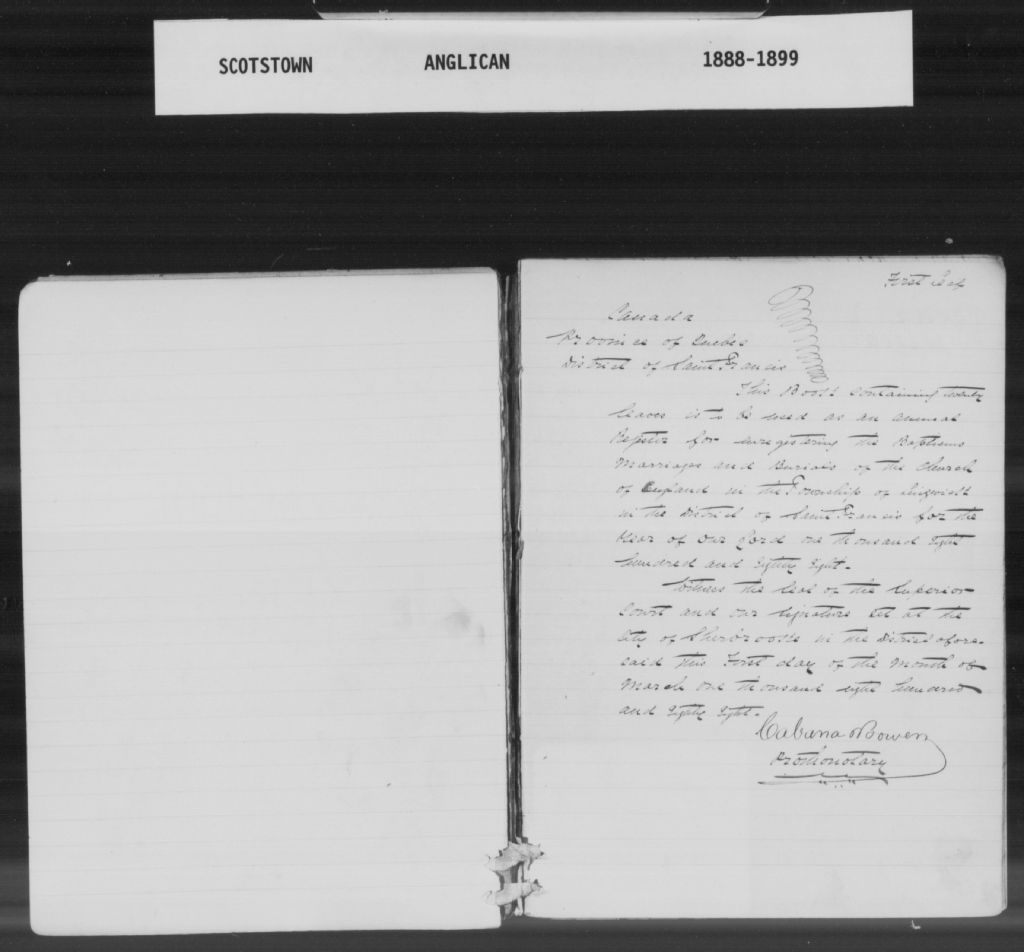 SCOTSTOWN ANGLICAN 1888-1899
First Leaf
Canada
Province of Quebec
District of Saint Francis
This Book containing twenty
leaves is to be used as an annual
Register for enregistering the Baptisms
Marriages and Burials of the Church
of England in the Township of Lingwick
in the District of Saint Francis for the
Year of our Lord one thousand Eight
hundred and Eighty Eight.
Witness the Seal of the Superior
Court and our signature set at the
City of Sherbrooke in the District afore-
said this First day of the Month of
March one thousand eight hundred
and Eighty Eight.
Cabana & Bowen
Prothonotary